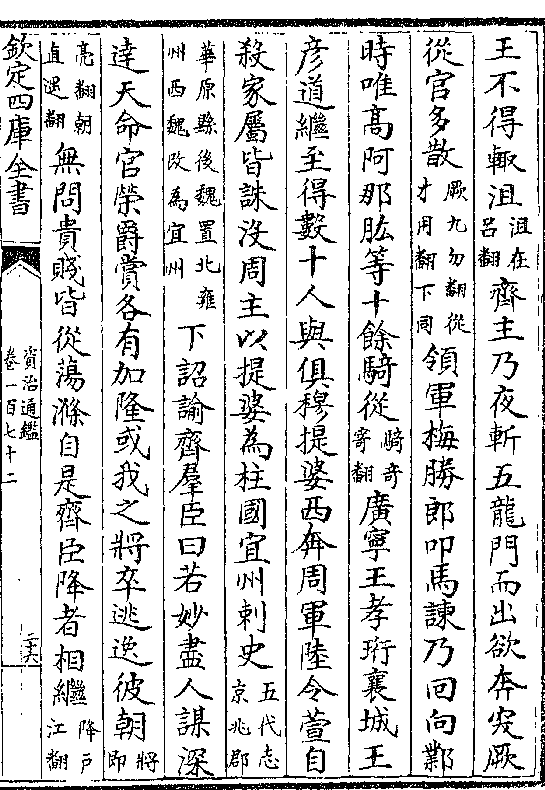 王不得輒沮沮在呂翻齊主乃夜斬五龍門而出欲奔突厥
從官多散厥九勿翻從才用翻下同領軍梅勝郎叩馬諫乃回向鄴
時唯高阿那肱等十餘騎從騎奇寄翻廣寧王孝珩襄城王
彦道繼至得數十人與俱穆提婆西奔周軍陸令萱自
殺家屬皆誅没周主以提婆為柱國宜州刺史五代志京兆郡
華原縣後魏置北雍州西魏改為宜州下詔諭齊羣臣曰若妙盡人謀深
達天命官榮爵賞各有加隆或我之將卒逃逸彼朝將即
亮翻朝直遥翻無問貴賤皆從蕩滌自是齊臣降者相繼降户江翻
欽定四庫全書
資治通鑑
卷一百七十二
二十六